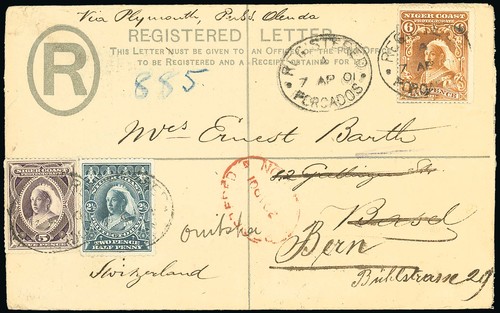 Via Plymouth, Perbd. Olenda
REGISTERED LETTER.
THIS LETTER MUST BE GIVEN TO AN OFFICER OF THE POST OFFICE
TO BE REGISTERED AND A RECEIPT OBTAINED FOR IT.
R
885
REGISTERED
A
7 AP 01
FORCADOS
NIGER COAST
6
PENCE
REGISTERED
7 AP
Mrs Ernest Barth
NIGER COAST
NIGER COAST
2½
TWO PENCE
HALF PENNY
Basel
Onitsha
Bern
Switzerland
Bühlstrasse 29